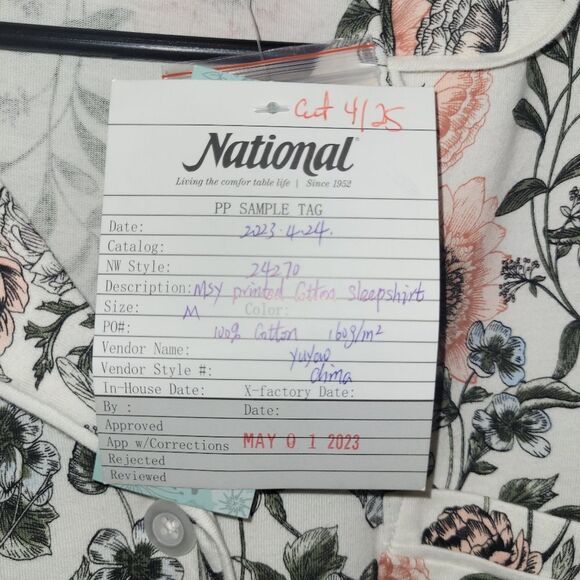 Cut 4/25
National
Living the comfortable life | Since 1952
PP SAMPLE TAG
Date: 2023.4.24.
Catalog:
NW Style: 24270
Description: MSY printed Cotton sleepshirt
Size: M Color:
PO#: 100% Cotton 160g/m²
Vendor Name: Yuyao
Vendor Style #: China
In-House Date: X-factory Date:
By : Date:
Approved
App w/Corrections MAY 0 1 2023
Rejected
Reviewed